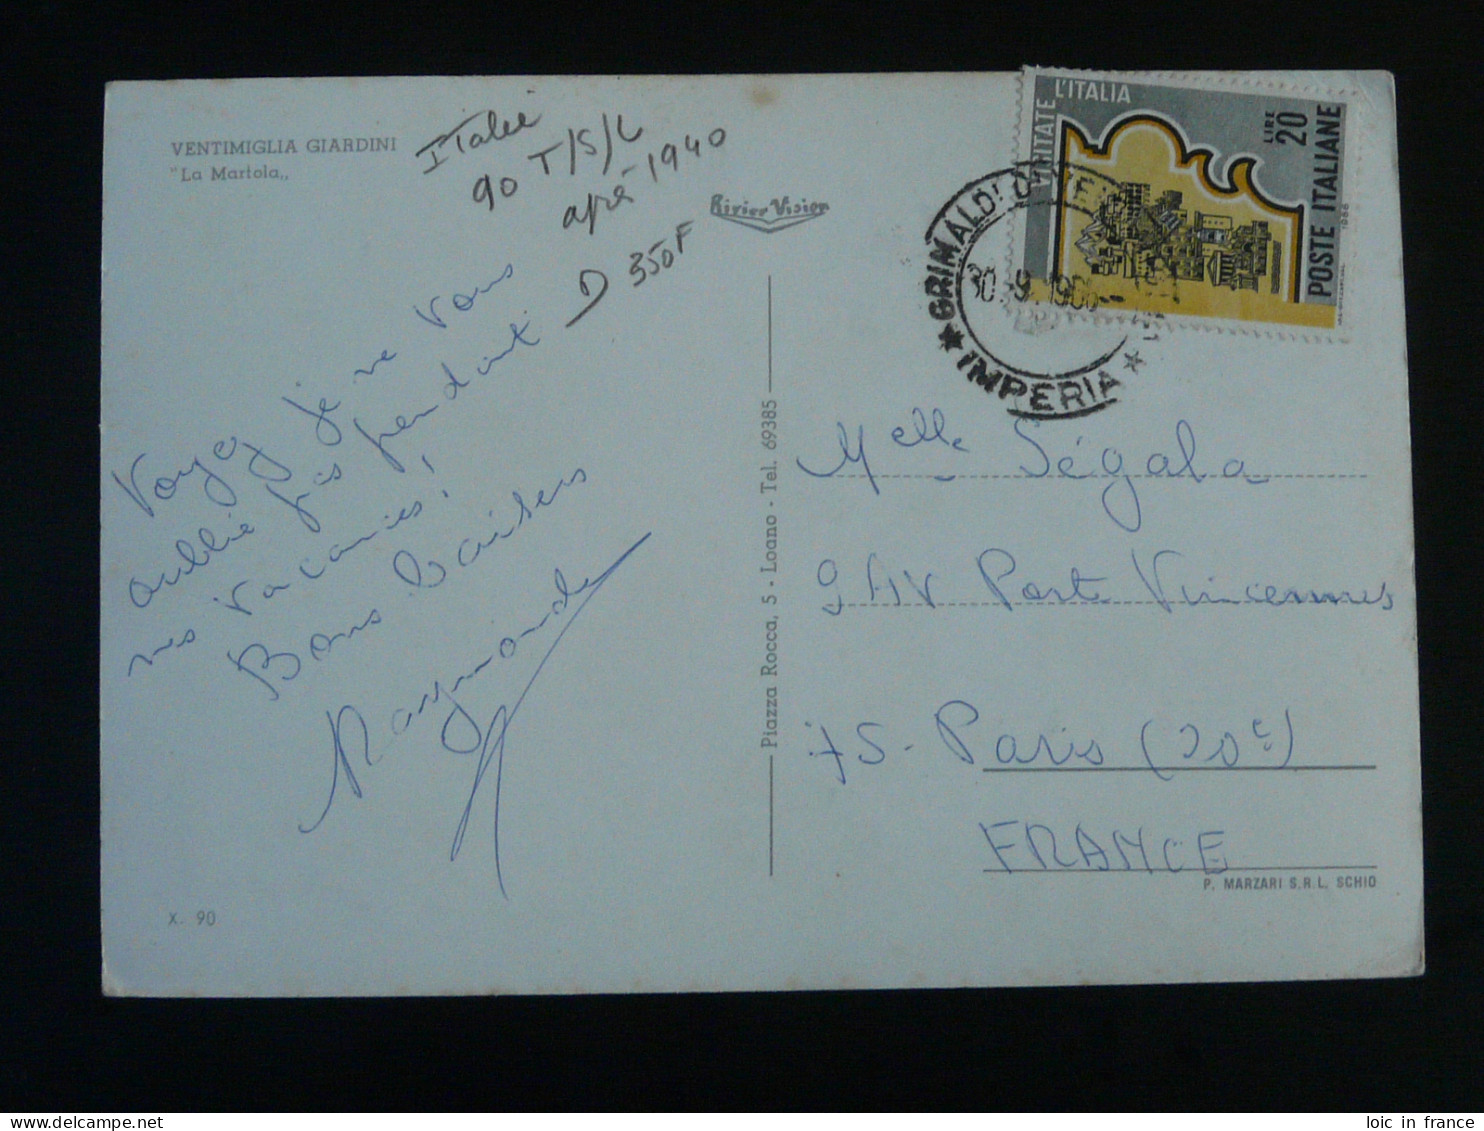 VENTIMIGLIA GIARDINI
"La Mortola,,
Italie
90 T/S/L
apré 1940
D 350F
Voyez je ne vous
oublie pas pendant
mes vacances!
Bons baisers
Raymonde
X. 90
Rivier Vision
Piazza Rocca, 5 - Loano - Tel. 69385
VISITATE L'ITALIA
LIRE 20
POSTE ITALIANE
1966
GRIMALDI DI VENTIMIGLIA
30.9.1966
★ IMPERIA ★
Melle Ségala
9 AV Porte Vincennes
75 - Paris (20e)
FRANCE
P. MARZARI S.R.L. SCHIO
loic in france